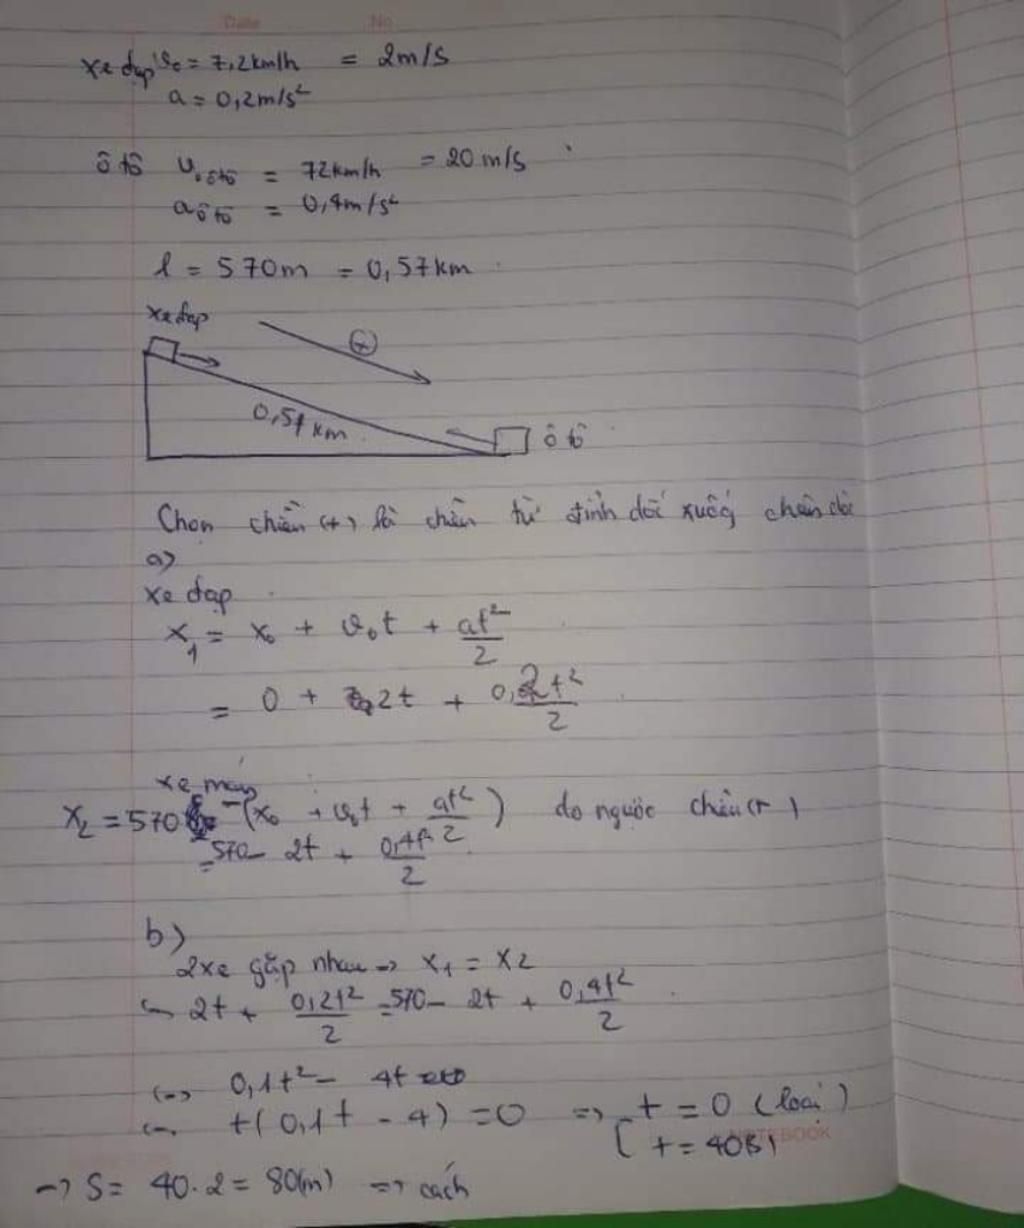 Date No
xe đạp v₀ = 7,2km/h = 2m/s
a = 0,2m/s²
ô tô v₀ ôtô = 72km/h = 20m/s
a ôtô = 0,4m/s²
l = 570m = 0,57km
xe đạp
+
0,57km
ô tô
Chọn chiều (+) là chiều từ đỉnh dốc xuống chân dốc
a)
xe đạp
x₁ = x₀ + v₀t + at²/2
= 0 + 2t + 0,2t²/2
xe máy
x₂ = 570 - (x₀ + v₀t + at²/2) do ngược chiều (+)
= 570 - 2t + 0,4t²/2
b)
2xe gặp nhau => x₁ = x₂
2t + 0,2t²/2 = 570 - 2t + 0,4t²/2
<=> 0,1t² - 4t
t(0,1t - 4) = 0 => [ t = 0 (loại)
t = 40(s)
NOTEBOOK
-> S = 40.2 = 80(m) => cách